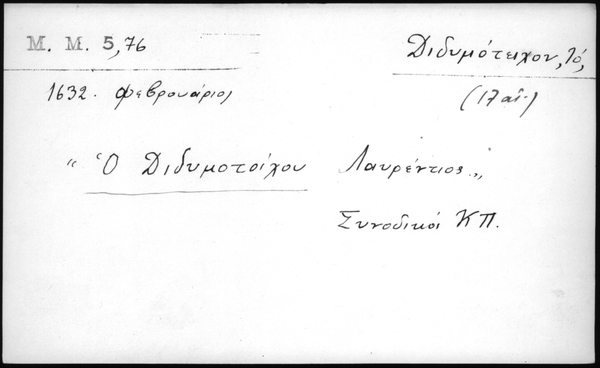 M. M. 5,76
Διδυμότειχον, Τό,
1632. Φεβρουάριος
(17 αἰ.)
"Ὁ Διδυμοτοίχου Λαυρέντιος"
Συνοδικοί ΚΠ.